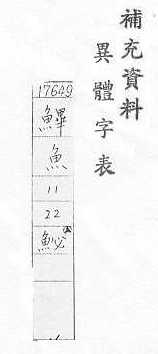 補充資料
異體字表
17649
魚
11
22
鮅